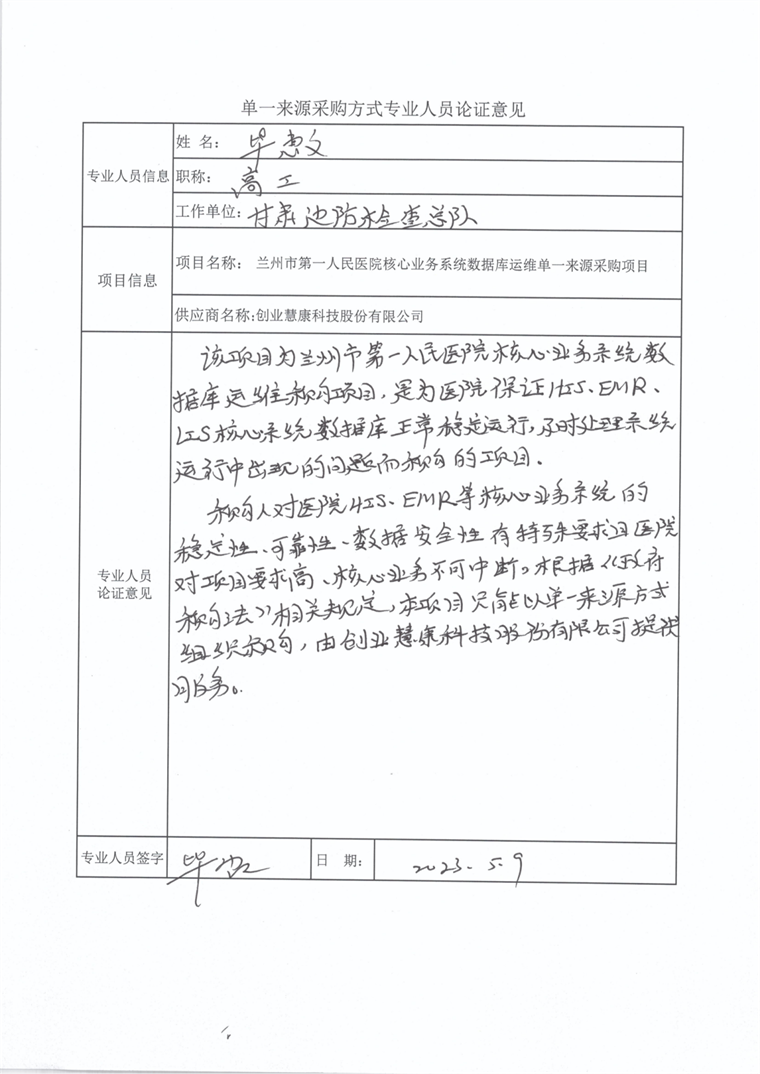 单一来源采购方式专业人员论证意见
专业人员信息
姓 名：毕惠文
职称：高工
工作单位：甘肃边防检查总队
项目信息
项目名称：兰州市第一人民医院核心业务系统数据库运维单一来源采购项目
供应商名称:创业慧康科技股份有限公司
专业人员
论证意见
该项目为兰州市第一人民医院核心业务系统数
据库运维采购项目，是为医院保证HIS、EMR、
LIS核心系统数据库正常稳定运行，及时处理系统
运行中出现的问题而采购的项目。
采购人对医院HIS、EMR等核心业务系统的
稳定性、可靠性、数据安全性有特殊要求且医院
对项目要求高、核心业务不可中断。根据《政府
采购法》相关规定，本项目只能以单一来源方式
组织采购，由创业慧康科技股份有限公司提供
服务。
专业人员签字
毕
日 期：
2023.5.9